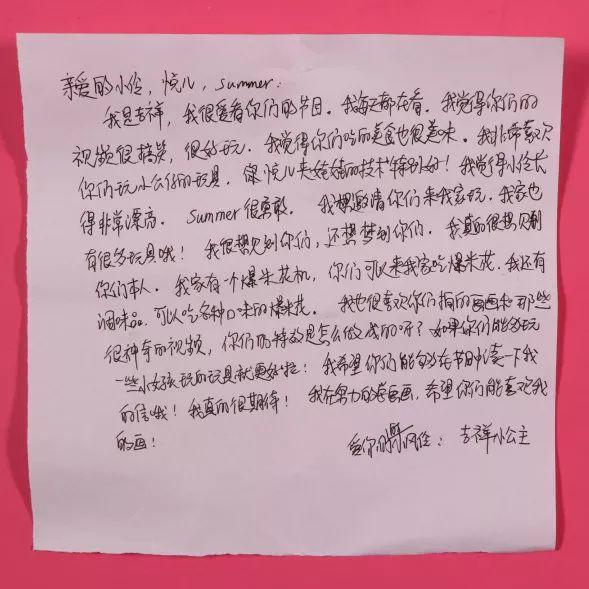 亲爱的小伶，悦儿，summer：
我是吉祥，我很爱看你们的节目。我每天都在看。我觉得你们的
视频很搞笑，很好玩。我觉得你们吃的美食也很美味。我非常喜欢
你们玩小公仔的玩具。悦儿夹娃娃的技术特别好！我觉得小伶长
得非常漂亮。summer很勇敢。我想邀请你们来我家玩。我家也
有很多玩具哦！我很想见到你们，还想梦到你们。我真的很想见到
你们本人。我家有一个爆米花机，你们可以来我家吃爆米花。我还有
调味品，可以吃各种口味的爆米花。我也很喜欢你们拍的画和那些
很神奇的视频，你们的特效是怎么做成的呀？如果你们能多玩
一些小女孩玩的玩具就更好啦！我希望你们能够在节目中读一下我
的信哦！我真的很期待！我在努力的画画，希望你们能喜欢我
的画！
爱你们的：吉祥小公主